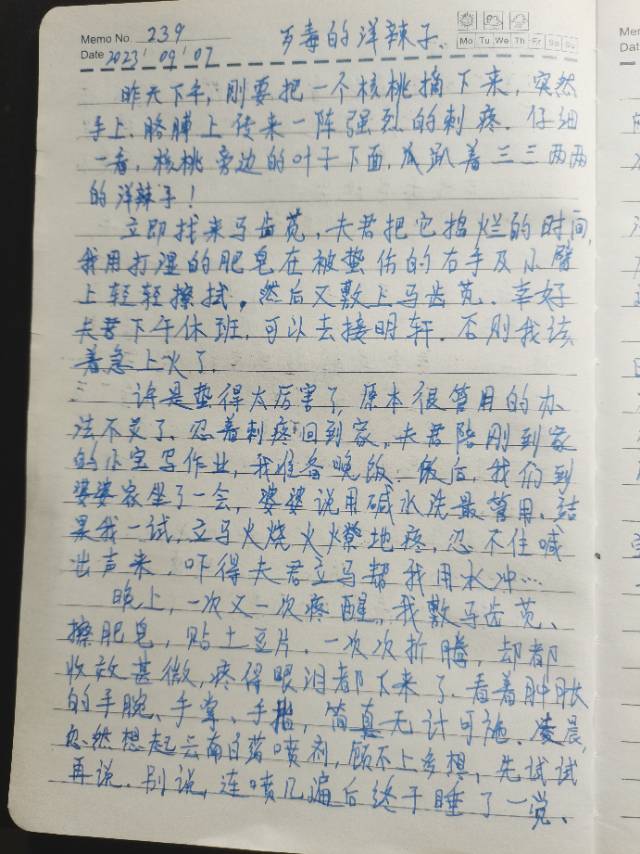 Memo No. 239
万毒的洋辣子.
Mo Tu We Th Fr Sa Su
Date 2023' 09' 07
昨天下午,刚要把一个核桃摘下来,突然
手上.胳膊上传来一阵强烈的刺疼.仔细
一看,核桃旁边的叶子下面,趴着三三两两
的洋辣子!
立即找来马齿苋,夫君把它捣烂的时间,
我用打湿的肥皂在被蛰伤的右手及小臂
上轻轻擦拭,然后又敷上马齿苋.幸好
夫君下午休班,可以去接明轩.否则我该
着急上火了.
许是蛰得太厉害了,原本很管用的办
法不灵了.忍着刺疼回到家,夫君陪刚到家
的小宝写作业,我准备晚饭.饭后,我们到
婆婆家坐了一会,婆婆说用碱水洗最管用.结
果我一试,立马火烧火燎地疼,忍不住喊
出声来,吓得夫君立马帮我用水冲…
晚上,一次又一次疼醒,我敷马齿苋、
擦肥皂,贴土豆片.一次次折腾,却都
收效甚微,疼得眼泪都下来了.看着肿胀
的手腕、手掌、手指,简直无计可施.凌晨,
忽然想起云南白药喷剂,顾不上多想,先试试
再说.别说,连喷几遍后终于睡了一觉、